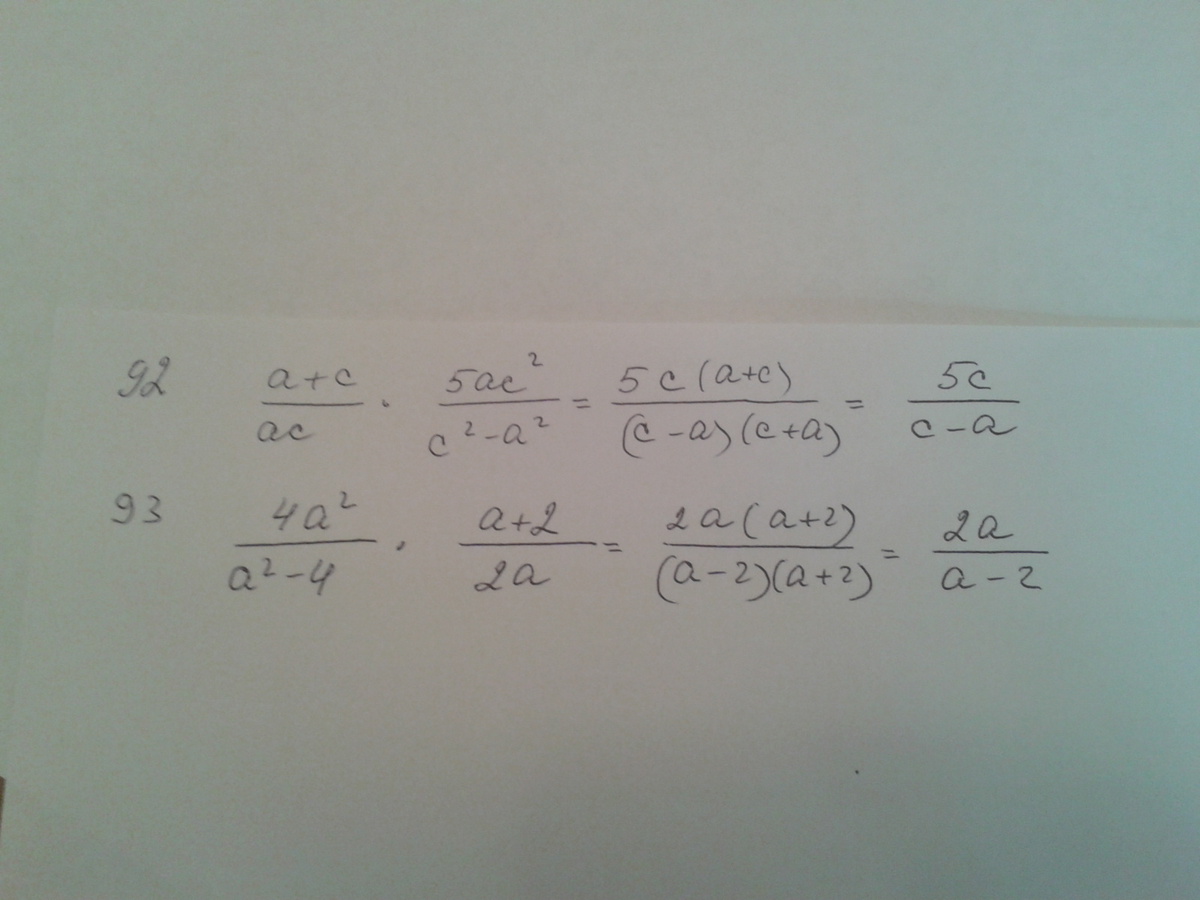 92 (a+c)/(ac) · (5ac²)/(c²-a²) = (5c(a+c))/((c-a)(c+a)) = (5c)/(c-a)
93 (4a²)/(a²-4) · (a+2)/(2a) = (2a(a+2))/((a-2)(a+2)) = (2a)/(a-2)